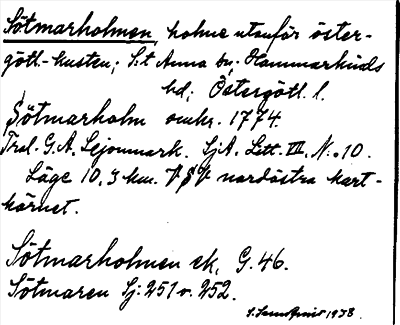 Sötmarholmen, holme utanför öster-
götl.-kusten; S:t Anna sn; Hammarkinds
hd; Östergötl. l.
Sötmarholm omkr. 1774.
Tral. G. A. Lejonmark. SjA. Litt. VII, N:o 10.
Läge 10,3 km. nordöstra kart-
hörnet.
Sötmarholmen ek. G. 46.
Sötmaren Sj: 251 o. 252.
1938